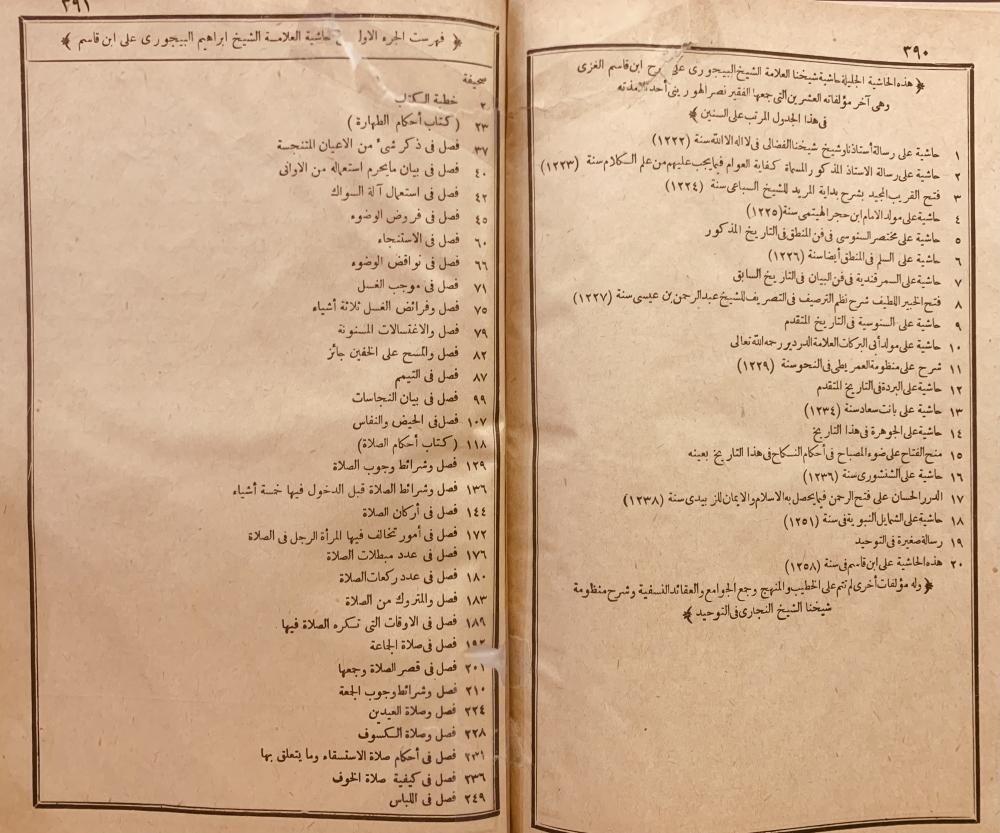 ٣٩٠
﴿ هذه الحاشية الجليلة حاشية شيخنا العلامة الشيخ البيجورى على رح ابن قاسم الغزى
وهى آخر مؤلفاته العشرين التى جمعها الفقير نصر الهورينى أحد تلامذته
فى هذا الجدول المرتب على السنين ﴾
١ حاشية على رسالة أستاذنا وشيخ شيخنا الفضالى فى لا اله الا الله سنة (١٢٢٢)
٢ حاشية على رسالة الاستاذ المذكور المسماة كفاية العوام فيما يجب عليهم من علم الكلام سنة (١٢٢٣)
٣ فتح القريب المجيد بشرح بداية المريد للشيخ السباعى سنة (١٢٢٤)
٤ حاشية على مولد الامام ابن حجر الهيتمى سنة (١٢٢٥)
٥ حاشية على مختصر السنوسى فى فن المنطق فى التاريخ المذكور
٦ حاشية على السلم فى المنطق أيضا سنة (١٢٢٦)
٧ حاشية على السمرقندية فى فن البيان فى التاريخ السابق
٨ فتح الخبير اللطيف شرح نظم الترصيف فى التصريف للشيخ عبد الرحمن بن عيسى سنة (١٢٢٧)
٩ حاشية على السنوسية فى التاريخ المتقدم
١٠ حاشية على مولد أبى البركات العلامة الدردير رحمه الله تعالى
١١ شرح على منظومة العمريطى فى النحو سنة (١٢٢٩)
١٢ حاشية على البردة فى التاريخ المتقدم
١٣ حاشية على بانت سعاد سنة (١٢٣٤)
١٤ حاشية على الجوهرة فى هذا التاريخ
١٥ منح الفتاح على ضوء المصباح فى أحكام النكاح فى هذا التاريخ بعينه
١٦ حاشية على الشنشورى سنة (١٢٣٦)
١٧ الدرر الحسان على فتح الرحمن فيما يحصل به الاسلام والايمان للزبيدى سنة (١٢٣٨)
١٨ حاشية على الشمايل النبوية فى سنة (١٢٥١)
١٩ رسالة صغيرة فى التوحيد
٢٠ هذه الحاشية على ابن قاسم فى سنة (١٢٥٨)
﴿ وله مؤلفات أخرى لم تتم على الخطيب والمنهج وجمع الجوامع والعقائد النسفية وشرح منظومة
شيخنا الشيخ النجارى فى التوحيد ﴾
٣٩١
﴿ فهرست الجزء الاول حاشية العلامة الشيخ ابراهيم البيجورى على ابن قاسم ﴾
صحيفة
٢ خطبة الكتاب
٢٣ (كتاب أحكام الطهارة)
٣٧ فصل فى ذكر شئ من الاعيان المتنجسة
٤٠ فصل فى بيان ما يحرم استعماله من الاوانى
٤٢ فصل فى استعمال آلة السواك
٤٥ فصل فى فروض الوضوء
٦٠ فصل فى الاستنجاء
٦٦ فصل فى نواقض الوضوء
٧١ فصل فى موجب الغسل
٧٥ فصل وفرائض الغسل ثلاثة أشياء
٧٩ فصل والاغتسالات المسنونة
٨٢ فصل والمسح على الخفين جائز
٨٧ فصل فى التيمم
٩٩ فصل فى بيان النجاسات
١٠٧ فصل فى الحيض والنفاس
١١٨ (كتاب أحكام الصلاة)
١٢٩ فصل وشرائط وجوب الصلاة
١٣٦ فصل وشرائط الصلاة قبل الدخول فيها خمسة أشياء
١٤٤ فصل فى أركان الصلاة
١٧٢ فصل فى أمور تخالف فيها المرأة الرجل فى الصلاة
١٧٦ فصل فى عدد مبطلات الصلاة
١٨٠ فصل فى عدد ركعات الصلاة
١٨٣ فصل والمتروك من الصلاة
١٨٩ فصل فى الاوقات التى تكره الصلاة فيها
١٩٢ فصل فى صلاة الجماعة
٢٠١ فصل فى قصر الصلاة وجمعها
٢١٠ فصل وشرائط وجوب الجمعة
٢٢٤ فصل وصلاة العيدين
٢٢٨ فصل وصلاة الكسوف
٢٣١ فصل فى أحكام صلاة الاستسقاء وما يتعلق بها
٢٣٦ فصل فى كيفية صلاة الخوف
٢٤٩ فصل فى اللباس